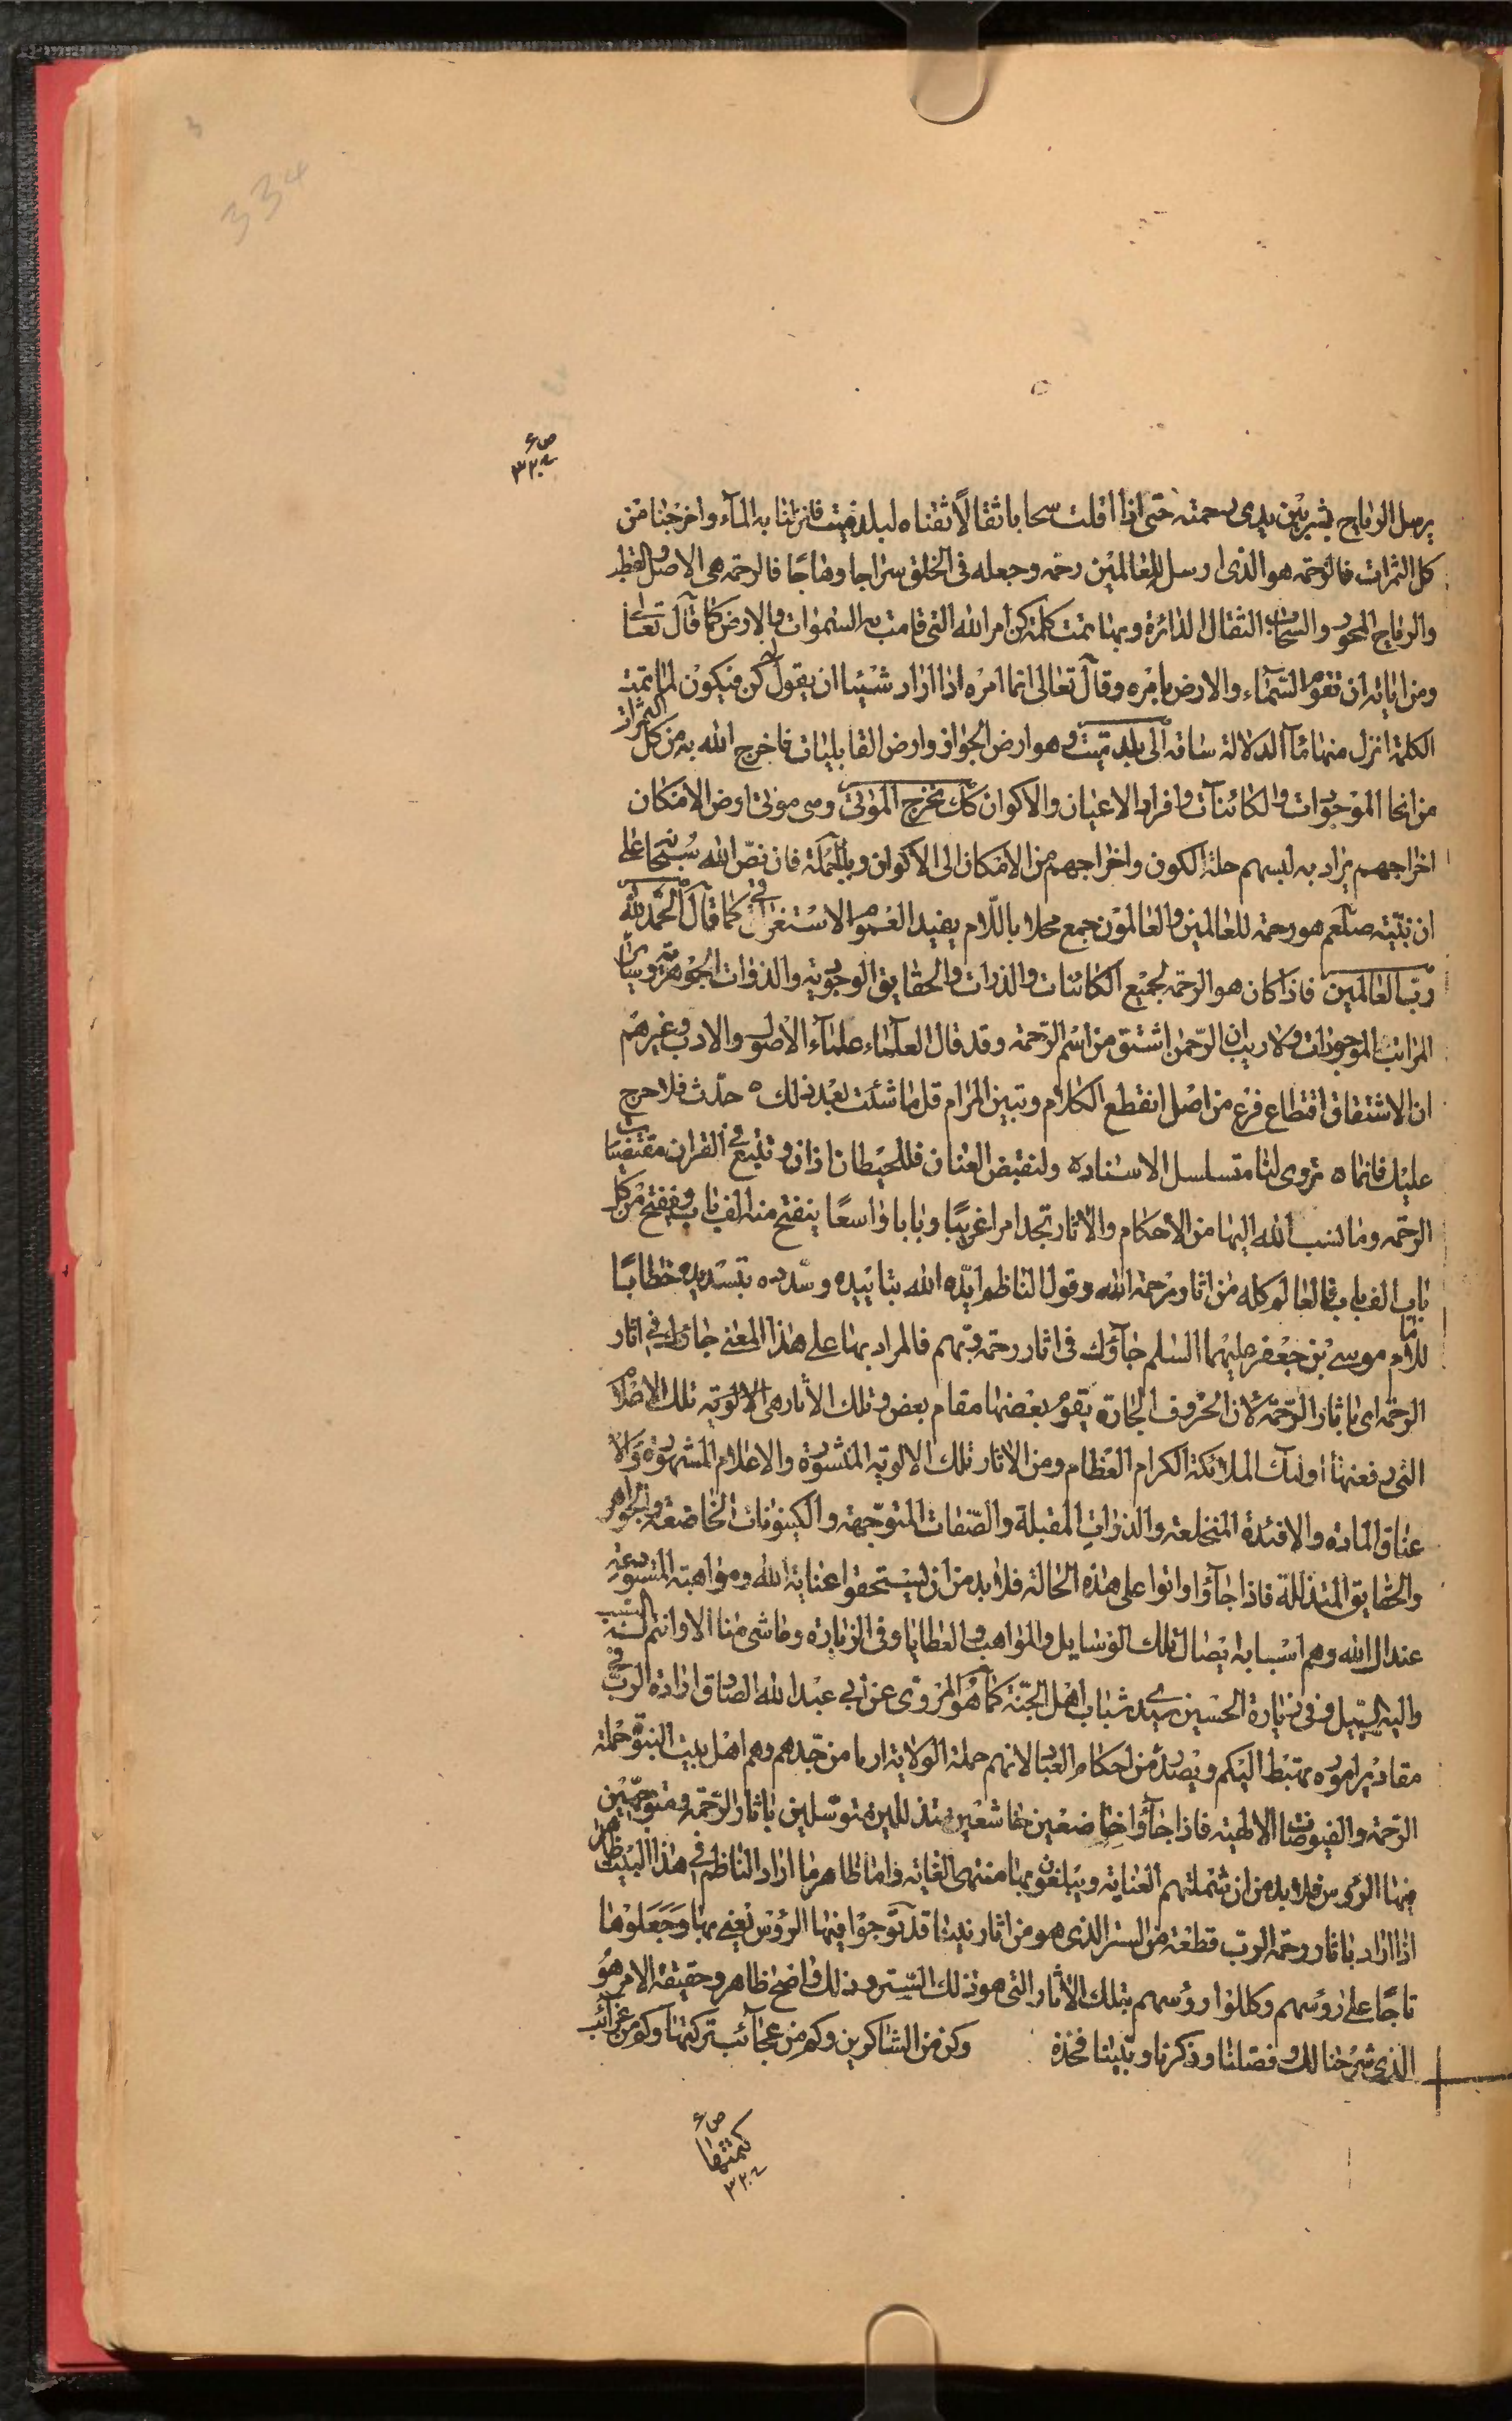 334
ص ۶
يرسل الرياح بشرا بين يدى رحمته حتى اذا اقلت سحابا ثقالًا سقناه لبلد ميت فانزلنا به المآء واخرجنا من
كل الثمرات فالرحمة هو الذى ارسل للعالمين رحمة وجعله فى الخلق سراجا وهاجًا فالرحمة هى الاصل القطب
والرياح المحور والسحاب الثقال الدائرة وبها تمت كلمة كن امر الله التى قامت به السموات والارض كما قال تعالى
ومن اياته ان تقوم السّمآء والارض بامره وقال تعالى انما امره اذا اراد شيئا ان يقول له كن فيكون لما تمت
الكلمة انزل منها مآء الدلالة ساقه الى بلد ميت وهو ارض الجواز وارض القابليات فاخرج الله به من كل الثمرات
من انحا الموجودات والكائنات وافراد الاعيان والاكوان كذلك نخرج الموتى وهى موتى ارض الامكان
اخراجهم يراد به لبسهم حلة الكون واخراجهم من الامكان الى الاكوان وبالجملة فان نصّ الله سبحانه على
ان نبيّه صلعم هو رحمة للعالمين والعالمون جمع محلا باللّام يفيد العموم الاستغراقى كما قال الحمد لله
ربّ العالمين فاذا كان هو الرحمة لجميع الكائنات والذرات والحقايق الوجودية والذوات الجوهرية وساير
المراتب الموجودات ولا ريب ان الرّحمن اشتق من اسم الرّحمة وقد قال العلمآء علمآء الاصول والادب وغيرهم
ان الاشتقاق اقتطاع فرع من اصل انقطع الكلام وتبين المرام قل ما شئت بعد ذلك ه حدّث فلا حرج
عليك فانما ه تروى لنا متسلسل الاسناده ولنقبض العنان فللحيطان اذان وتتبع فى القران مقتضيات
الرحمة وما نسب الله اليها من الأحكام والأثار تجد امرا غريبًا وبابا واسعًا ينفتح منه الف باب وينفتح من كل
باب الف باب فالعالم كله من اثار رحمة الله وقول الناظم ايّده الله بتاييده وسدده بتسديده خطابًا
للامام موسى بن جعفر عليهما السلم جآؤك فى اثار رحمة ربهم فالمراد بها على هذا المعنى جاؤك فى اثار
الرحمة اى باثار الرّحمة لان الحروف الجارة يقوم بعضها مقام بعض وتلك الأثار هى الالوية تلك الاعلام
التى رفعتها اولئك الملائكة الكرام العظام ومن الاثار تلك الالوية المنشورة والاعلام المشهورة والا
عناق الماده والافئدة المنخلعة والذوات المقبلة والصّفات المتوجّهة والكينونات الخاضعة والجواهر
والحقايق المتذللة فاذا جآؤا واتوا على هذه الحالة فلا بد من ان يستحقوا عناية الله ومواهبه المتسوعة
عند الله وهم اسباب ايصال تلك الوسايل والمواهب والعطايا وفى الزيارة وما شى منا الا وانتم له السبب
واليه السبيل وفى زيارة الحسين سيد شباب اهل الجنّة كما هو المروى عن ابى عبد الله الصادق ارادة الربّ فى
مقادير اموره تهبط اليكم ويصدر من احكام العباد لانهم حملة الولاية ارثا من جدهم وهم اهل بيت النبوة حملة
الرّحمة والفيوضات الالهية فاذا جآؤا خاضعين خاشعين متذللين متوسّلين باثار الرّحمة ومتوجّهين
فيها الرؤس فلا بد من ان تشملهم العناية ويبلغون بها منتهى الغاية واما ظاهر ما اراد الناظم فى هذا البيت ظاهر
اذا اراد باثار رحمة الرب قطعة من الستر الذى هو من اثار نبينا قد توّجوا فيها الرؤس يعنى بها وجعلوها
تاجًا على رؤسهم وكللوا رؤسهم بتلك الأثار التى هو ذلك السّتر وذلك واضح ظاهر وحقيقة الامر هو
الذى شرحنا لك وفصلنا وذكرنا وبيّنا فخذه وكن من الشاكرين وكم من عجآئب تركتها وكم من غرآئب
ص ۶
كتمتها